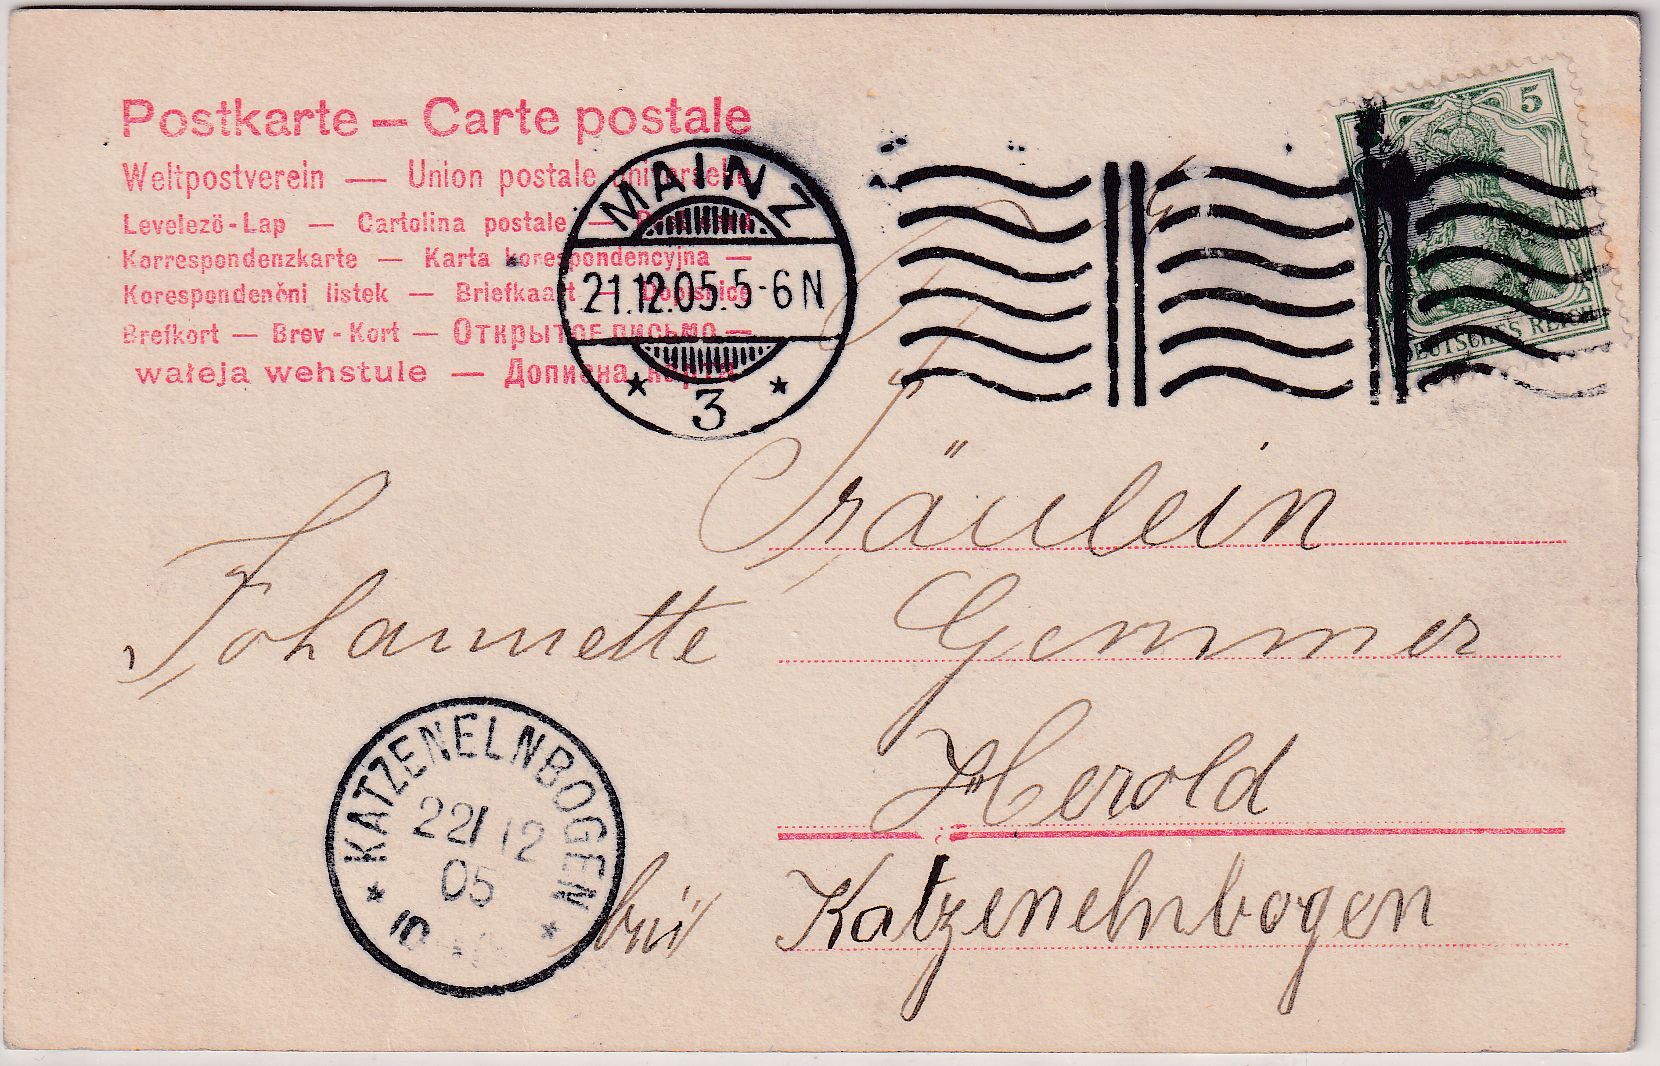 Postkarte — Carte postale
Weltpostverein — Union postale universelle
Levelezö-Lap — Cartolina postale —
Korrespondenzkarte — Karta korespondencyjna —
Korespondenčni listek — Briefkaart — Dopisnice
Brefkort — Brev-Kort — Открытое письмо —
wałeja wehstule — Дописна карта
MAINZ
21.12.05.5-6N
* 3 *
5
DEUTSCHES REICH
Fräulein
Johannette Gemmer
Herold
bei Katzenelnbogen
* KATZENELNBOGEN *
22/12
05